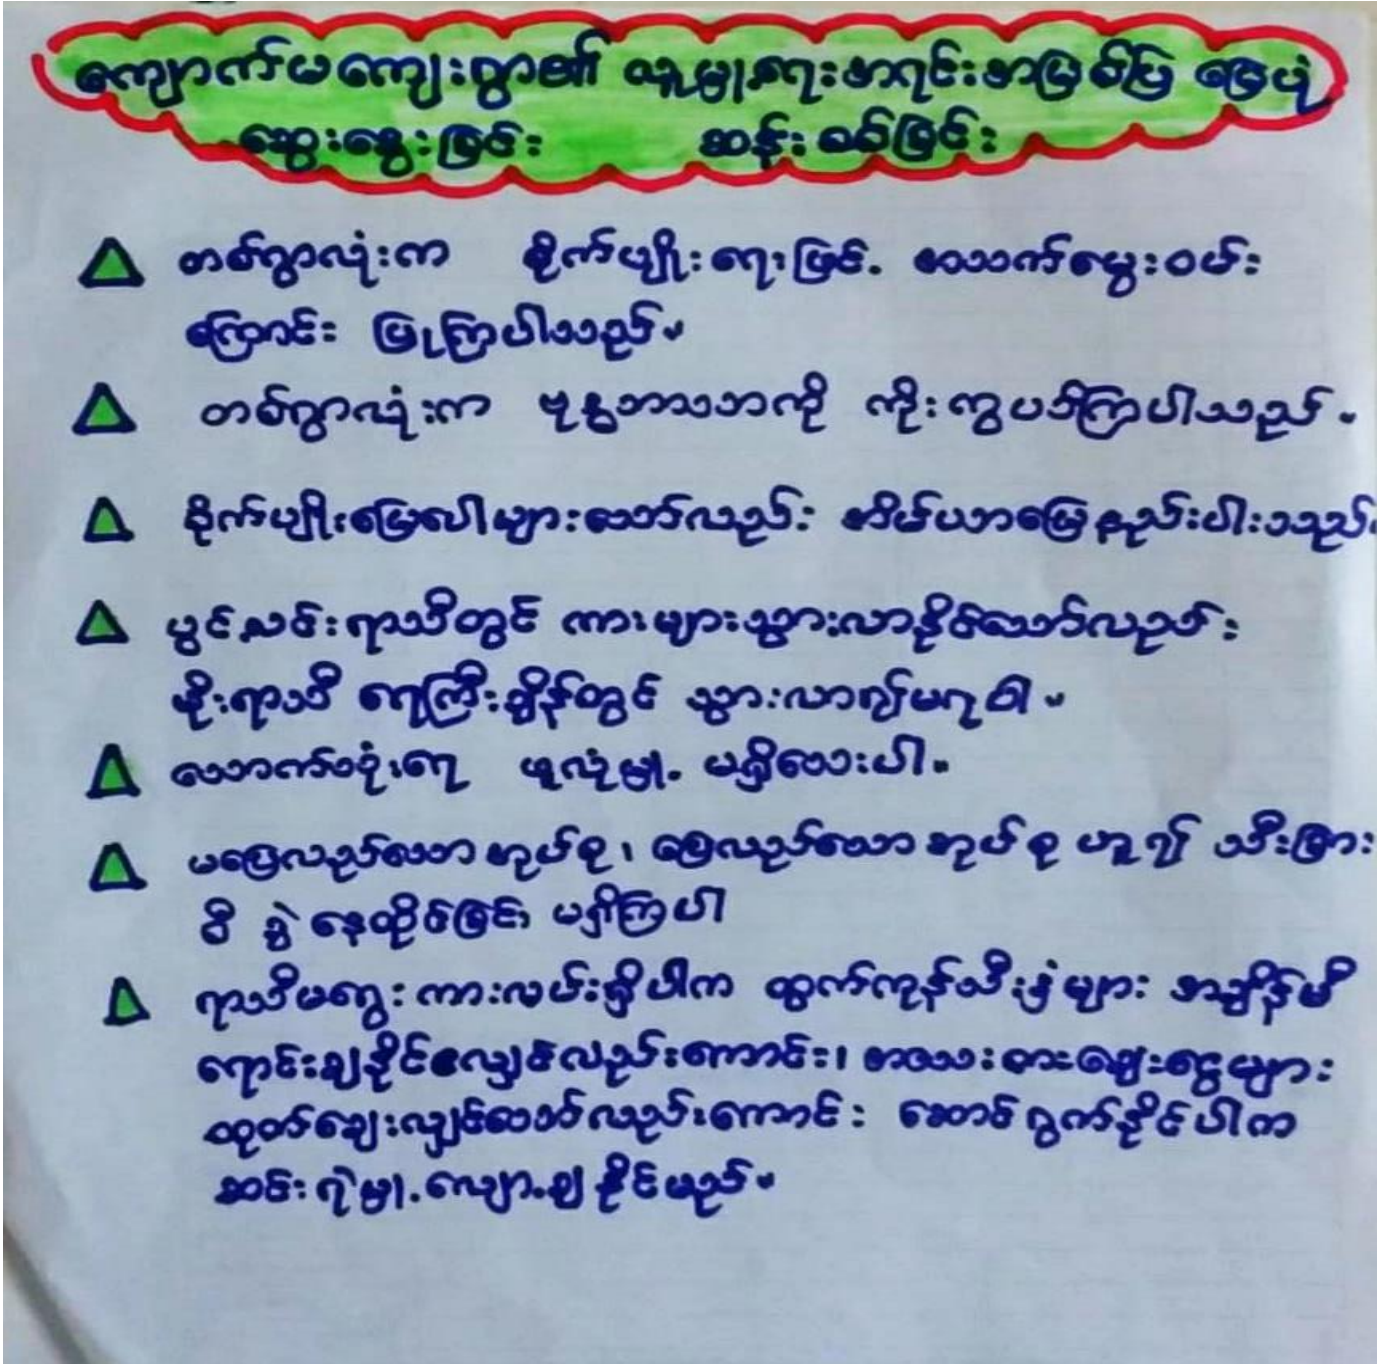 ကျောက်မကျေးရွာ၏ လူမှုရေးအရင်းအမြစ်ပြ မြေပုံ
ဆွေးနွေးခြင်း ဆန်းစစ်ခြင်း
တစ်ရွာလုံးက စိုက်ပျိုးရေးဖြင့် အသက်မွေးဝမ်း
ကြောင်း ပြုကြပါသည်။
တစ်ရွာလုံးက ဗုဒ္ဓဘာသာကို ကိုးကွယ်ကြပါသည်။
စိုက်ပျိုးမြေပေါများသော်လည်း အိမ်ယာမြေနည်းပါးသည်။
ပွင့်လင်းရာသီတွင် ကားများသွားလာနိုင်သော်လည်း
မိုးရာသီ ရေကြီးချိန်တွင် သွားလာ၍မရပါ။
သောက်သုံးရေ ဖူလုံမှု မရှိသေးပါ။
မပြေလည်သောအုပ်စု၊ ပြေလည်သောအုပ်စု ဟူ၍ သီးခြား
စီ ခွဲနေထိုင်ခြင်း မရှိကြပါ
ရာသီမရွေး ကားလမ်းရှိပါက ထွက်ကုန်သီးနှံများ အချိန်မီ
ရောင်းချနိုင်လျှင်လည်းကောင်း၊ အသေးစားချေးငွေများ
ထုတ်ချေးလျှင်သော်လည်းကောင်း ဆောင်ရွက်နိုင်ပါက
ဆင်းရဲမှု လျော့ချနိုင်မည်။